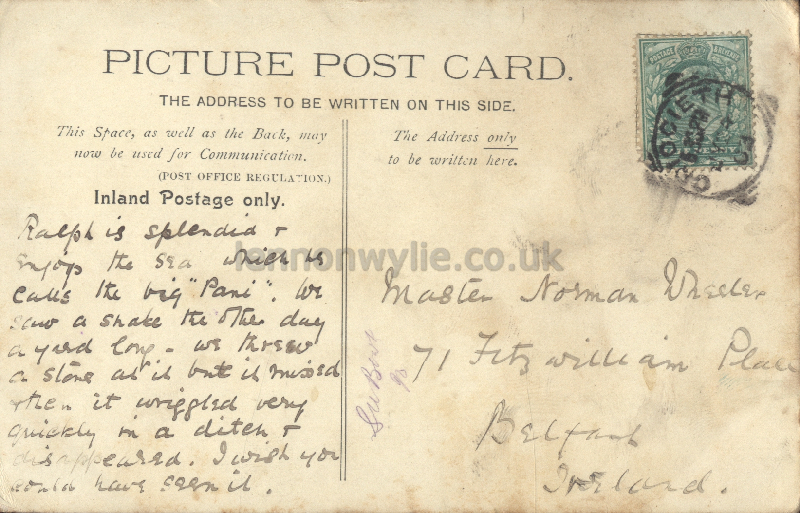 PICTURE POST CARD.
THE ADDRESS TO BE WRITTEN ON THIS SIDE.
This Space, as well as the Back, may
now be used for Communication.
(POST OFFICE REGULATION.)
Inland Postage only.
Ralph is splendid +
enjoys the sea which he
calls the big "Pani". We
saw a snake the other day
a yard long - we threw
a stone at it but it missed
then it wriggled very
quickly in a ditch +
disappeared. I wish you
could have seen it.
The Address only
to be written here.
Master Norman Wheeler
71 Fitzwilliam Place
Belfast
Ireland.
POSTAGE & REVENUE
CRICCIETH
04
lennonwylie.co.uk